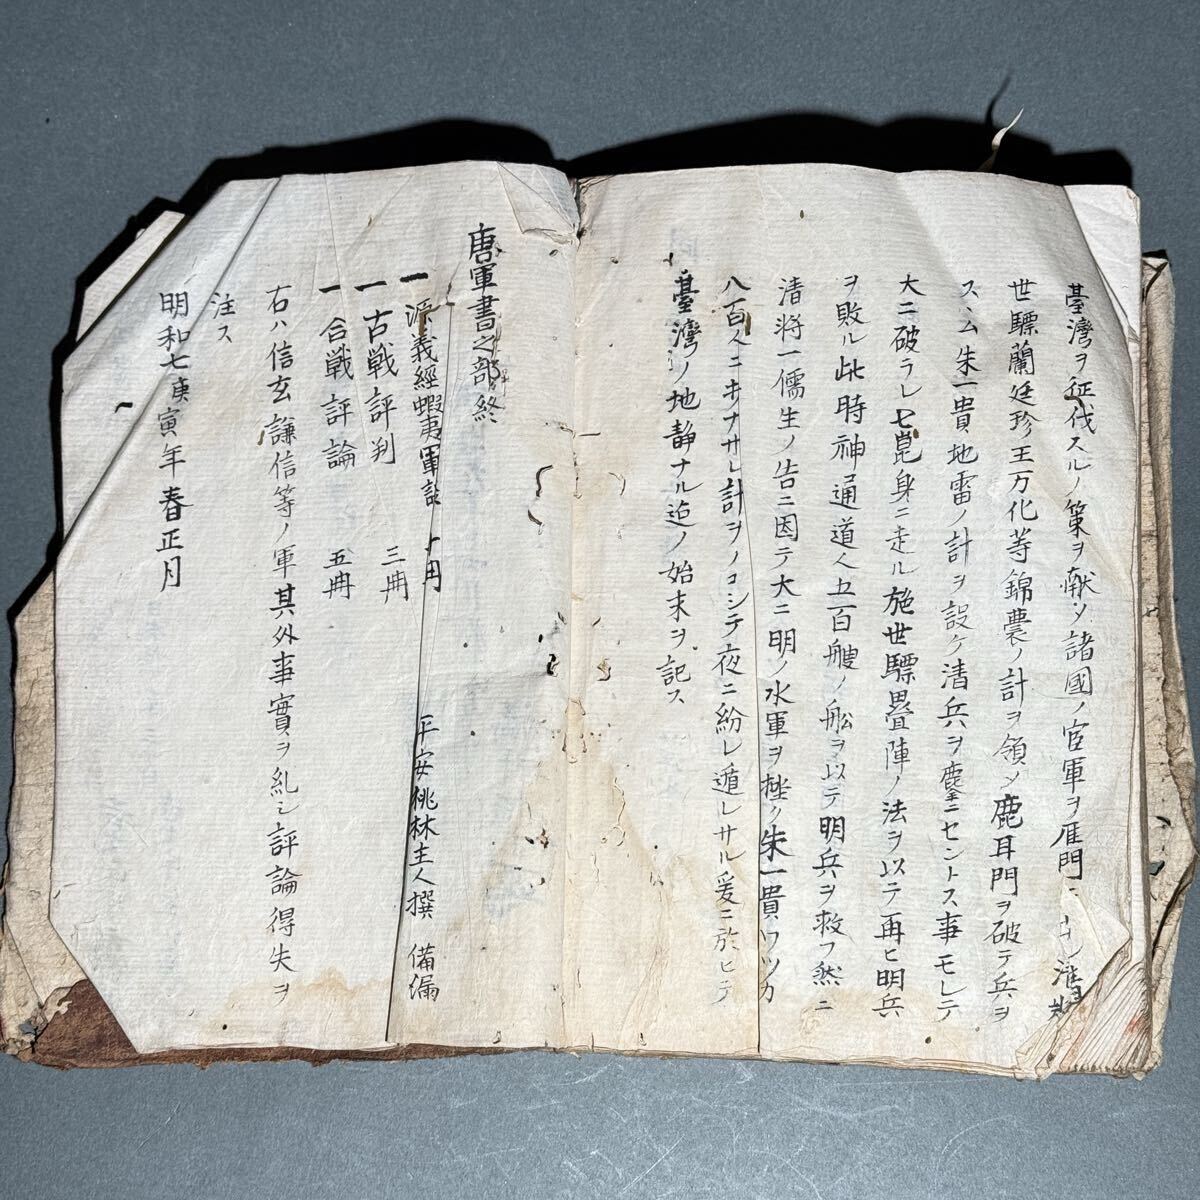 臺灣ヲ征伐スルノ策ヲ献ソ諸國ノ官軍ヲ雁門ニ
世驃蘭廷珍王万化等錦農ノ計ヲ領メ鹿耳門ヲ破テ兵ヲ
スヽム朱一貴地雷ノ計ヲ設ケ清兵ヲ鏖ニセントス事モレテ
大ニ破ラレ七崑身ニ走ル施世驃畳陣ノ法ヲ以テ再ヒ明兵
ヲ敗ル此時神通道人五百艘ノ舩ヲ以テ明兵ヲ救フ然ニ
清将一儒生ノ告ニ因テ大ニ明ノ水軍ヲ挫ク朱一貴ワツカ
八百人ニ キナサレ計ヲノコシテ夜ニ紛レ遁レサル爰ニ於ヒテ
臺灣ノ地静ナル迠ノ始末ヲ記ス
唐軍書之部終
一 源義經蝦夷軍談 十冊 平安桃林主人撰 備漏
一 古戦評判 三冊
一 合戦評論 五冊
右ハ信玄謙信等ノ軍其外事實ヲ糺シ評論得失ヲ
注ス
明和七庚寅年春正月